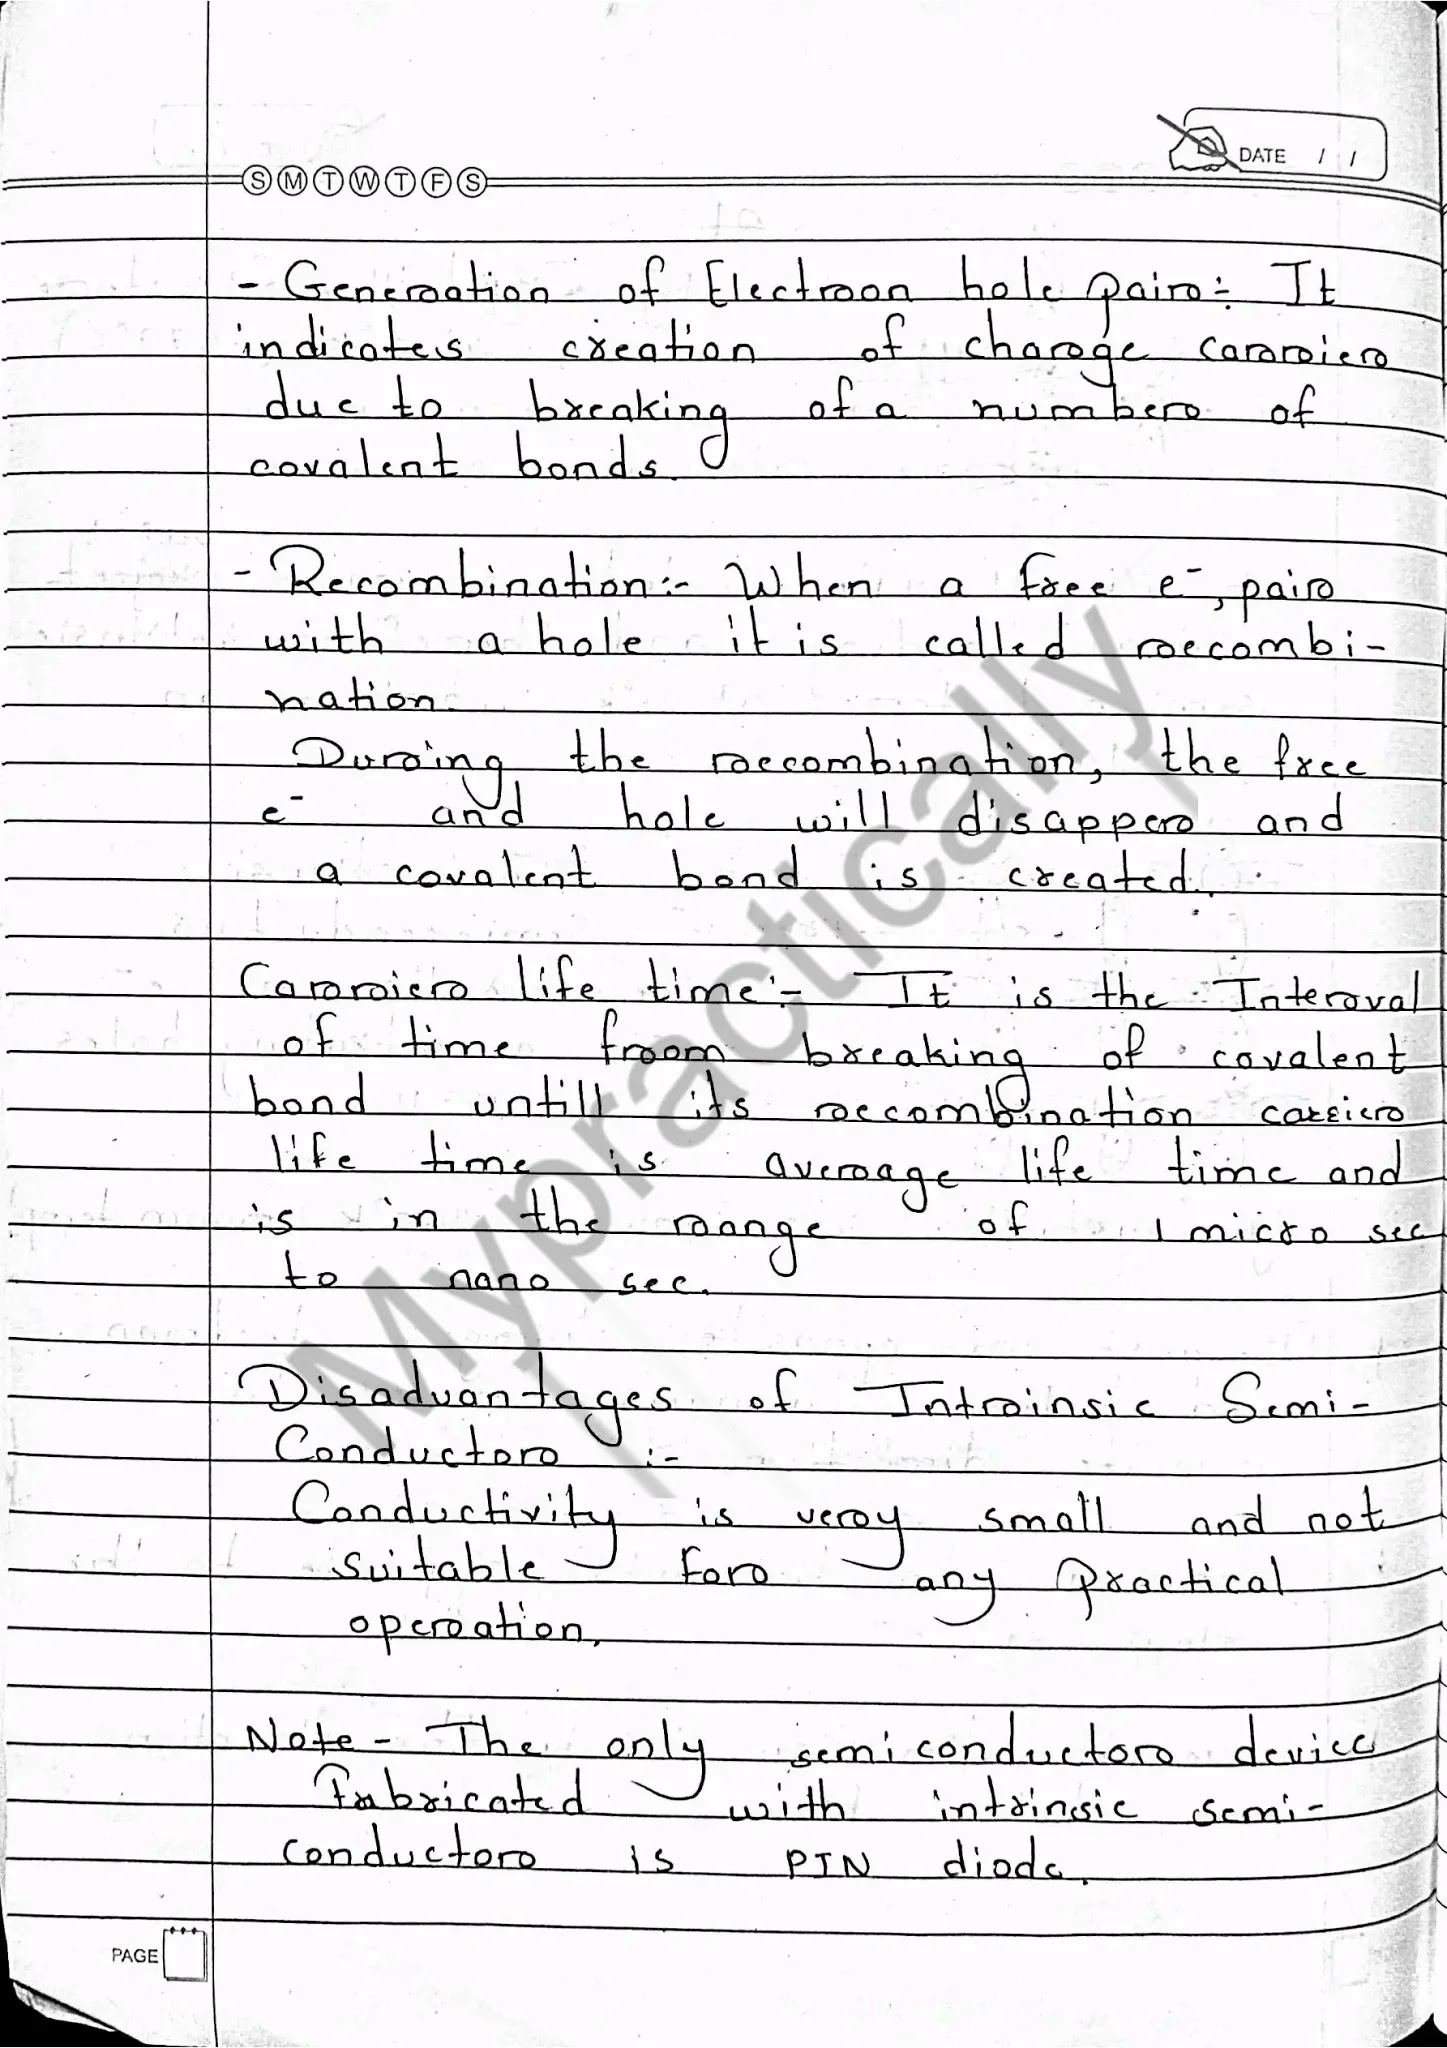 S M T W T F S
DATE / /
- Generation of Electron hole pair:- It
indicates creation of charge carrier
due to breaking of a number of
covalent bonds.
- Recombination:- When a free e⁻, pair
with a hole it is called recombi-
nation.
During the recombination, the free
e⁻ and hole will disapper and
a covalent bond is created.
Carrier life time:- It is the Interval
of time from breaking of covalent
bond untill its recombination carrier
life time is average life time and
is in the range of 1 micro sec
to nano sec.
Disadvantages of Intrinsic Semi-
Conductor :-
Conductivity is very small and not
suitable for any practical
operation.
Note - The only semiconductor device
Fabricated with intrinsic semi-
conductor is PIN diode.
PAGE
Mypractically